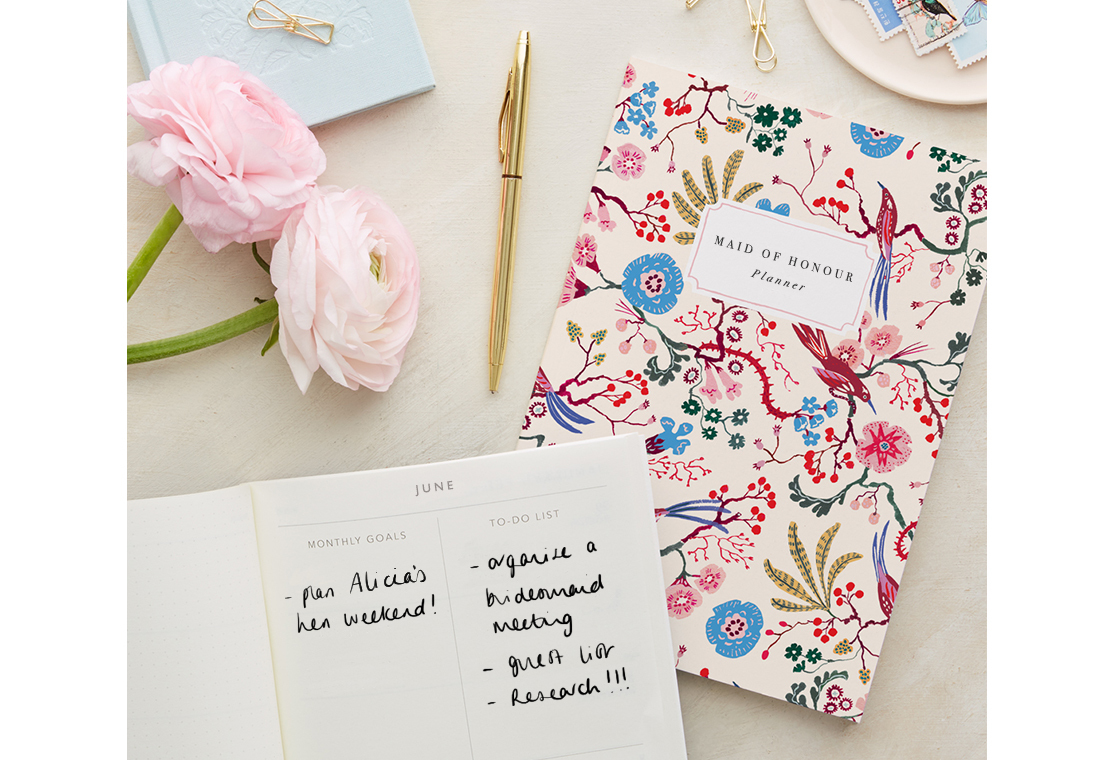 MAID OF HONOUR
Planner
JUNE
MONTHLY GOALS
- plan Alicia's
hen weekend!
TO-DO LIST
- organise a
bridesmaid
meeting
- guest list
- Research!!!